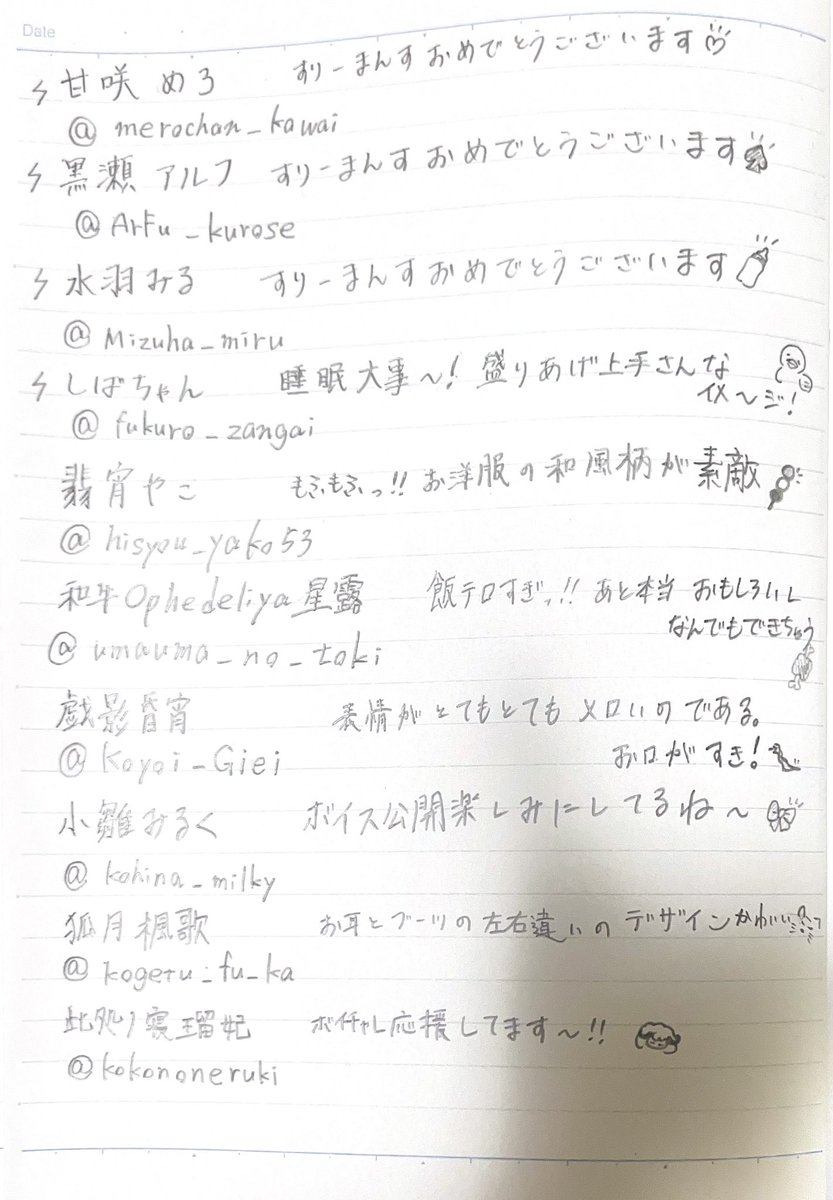 Date
甘咲 める すりーまんすおめでとうございます
@ merochan_kawai
黒瀬 アルフ すりーまんすおめでとうございます
@ Arfu_kurose
水羽みる すりーまんすおめでとうございます
@ Mizuha_miru
しばちゃん 睡眠大事〜! 盛りあげ上手さんな
イメ〜ジ!
@ fukuro_zangai
翡宵やこ もふもふっ!! お洋服の和風柄が素敵
@ hisyou_yako53
和牛Ophedeliya星露 飯テロすぎっ!! あと本当 おもしろいし
なんでもできちゃう
@ umauma_no_toki
戯影昏宵 表情がとてもとても メロいのである。
@ Koyoi_Giei お口がすき!
小雛みるく ボイス公開楽しみにしてるね〜
@ kohina_milky
狐月楓歌 お耳とブーツの左右違いの デザインかわいい
@ kogetu_fu_ka
此処ノ寝瑠妃 ボイチャレ応援してます〜!!
@kokononeruki